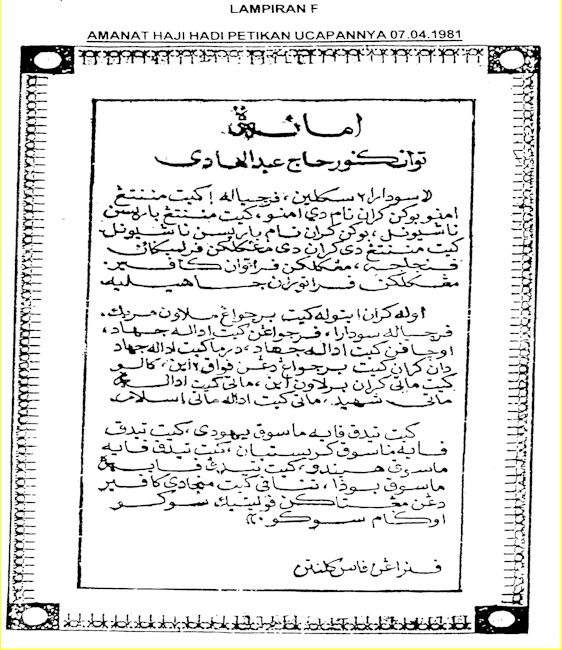 LAMPIRAN F
AMANAT HAJI HADI PETIKAN UCAPANNYA 07.04.1981
امانة
توان ݢورو حاج عبدالهادي
"سودارا٢ سکلين، ڤرچياله! کيت مننتڠ
امنو بوکن کران نام دي امنو، کيت مننتڠ باريسن
ناشيونل، بوکن کران نام باريسن ناشيونل.
کيت مننتڠ دي کران دي مڠکلکن ڤرلمباݢاءن
ڤنجاجه، مڠکلکن ڤراتورن کافير،
مڠکلکن ڤراتورن جاهيليه.
اوله کران ايتوله کيت برجواڠ ملاون مريک.
ڤرچياله سودارا، ڤرجواڠن کيت اداله جهاد،
اوچاڤن کيت اداله جهاد، درما کيت اداله جهاد
دان کران کيت برجواڠ دڠن ڤواق٢ اين، کالاو
کيت ماتي کران برلاون اين، ماتي کيت اداله
ماتي شهيد، ماتي کيت اداله ماتي اسلام.
کيت تيدق ڤايه ماسوق يهودي، کيت تيدق
ڤايه ماسوق کريستيان، کيت تيدق ڤايه
ماسوق هيندو، کيت تيدق ڤايه
ماسوق بودا، تتاڤي کيت منجادي کافير
دڠن مڠتاکن ڤوليتيک سوکو
اوݢام سوکو."
ڤنراڠن ڤاس کلنتن